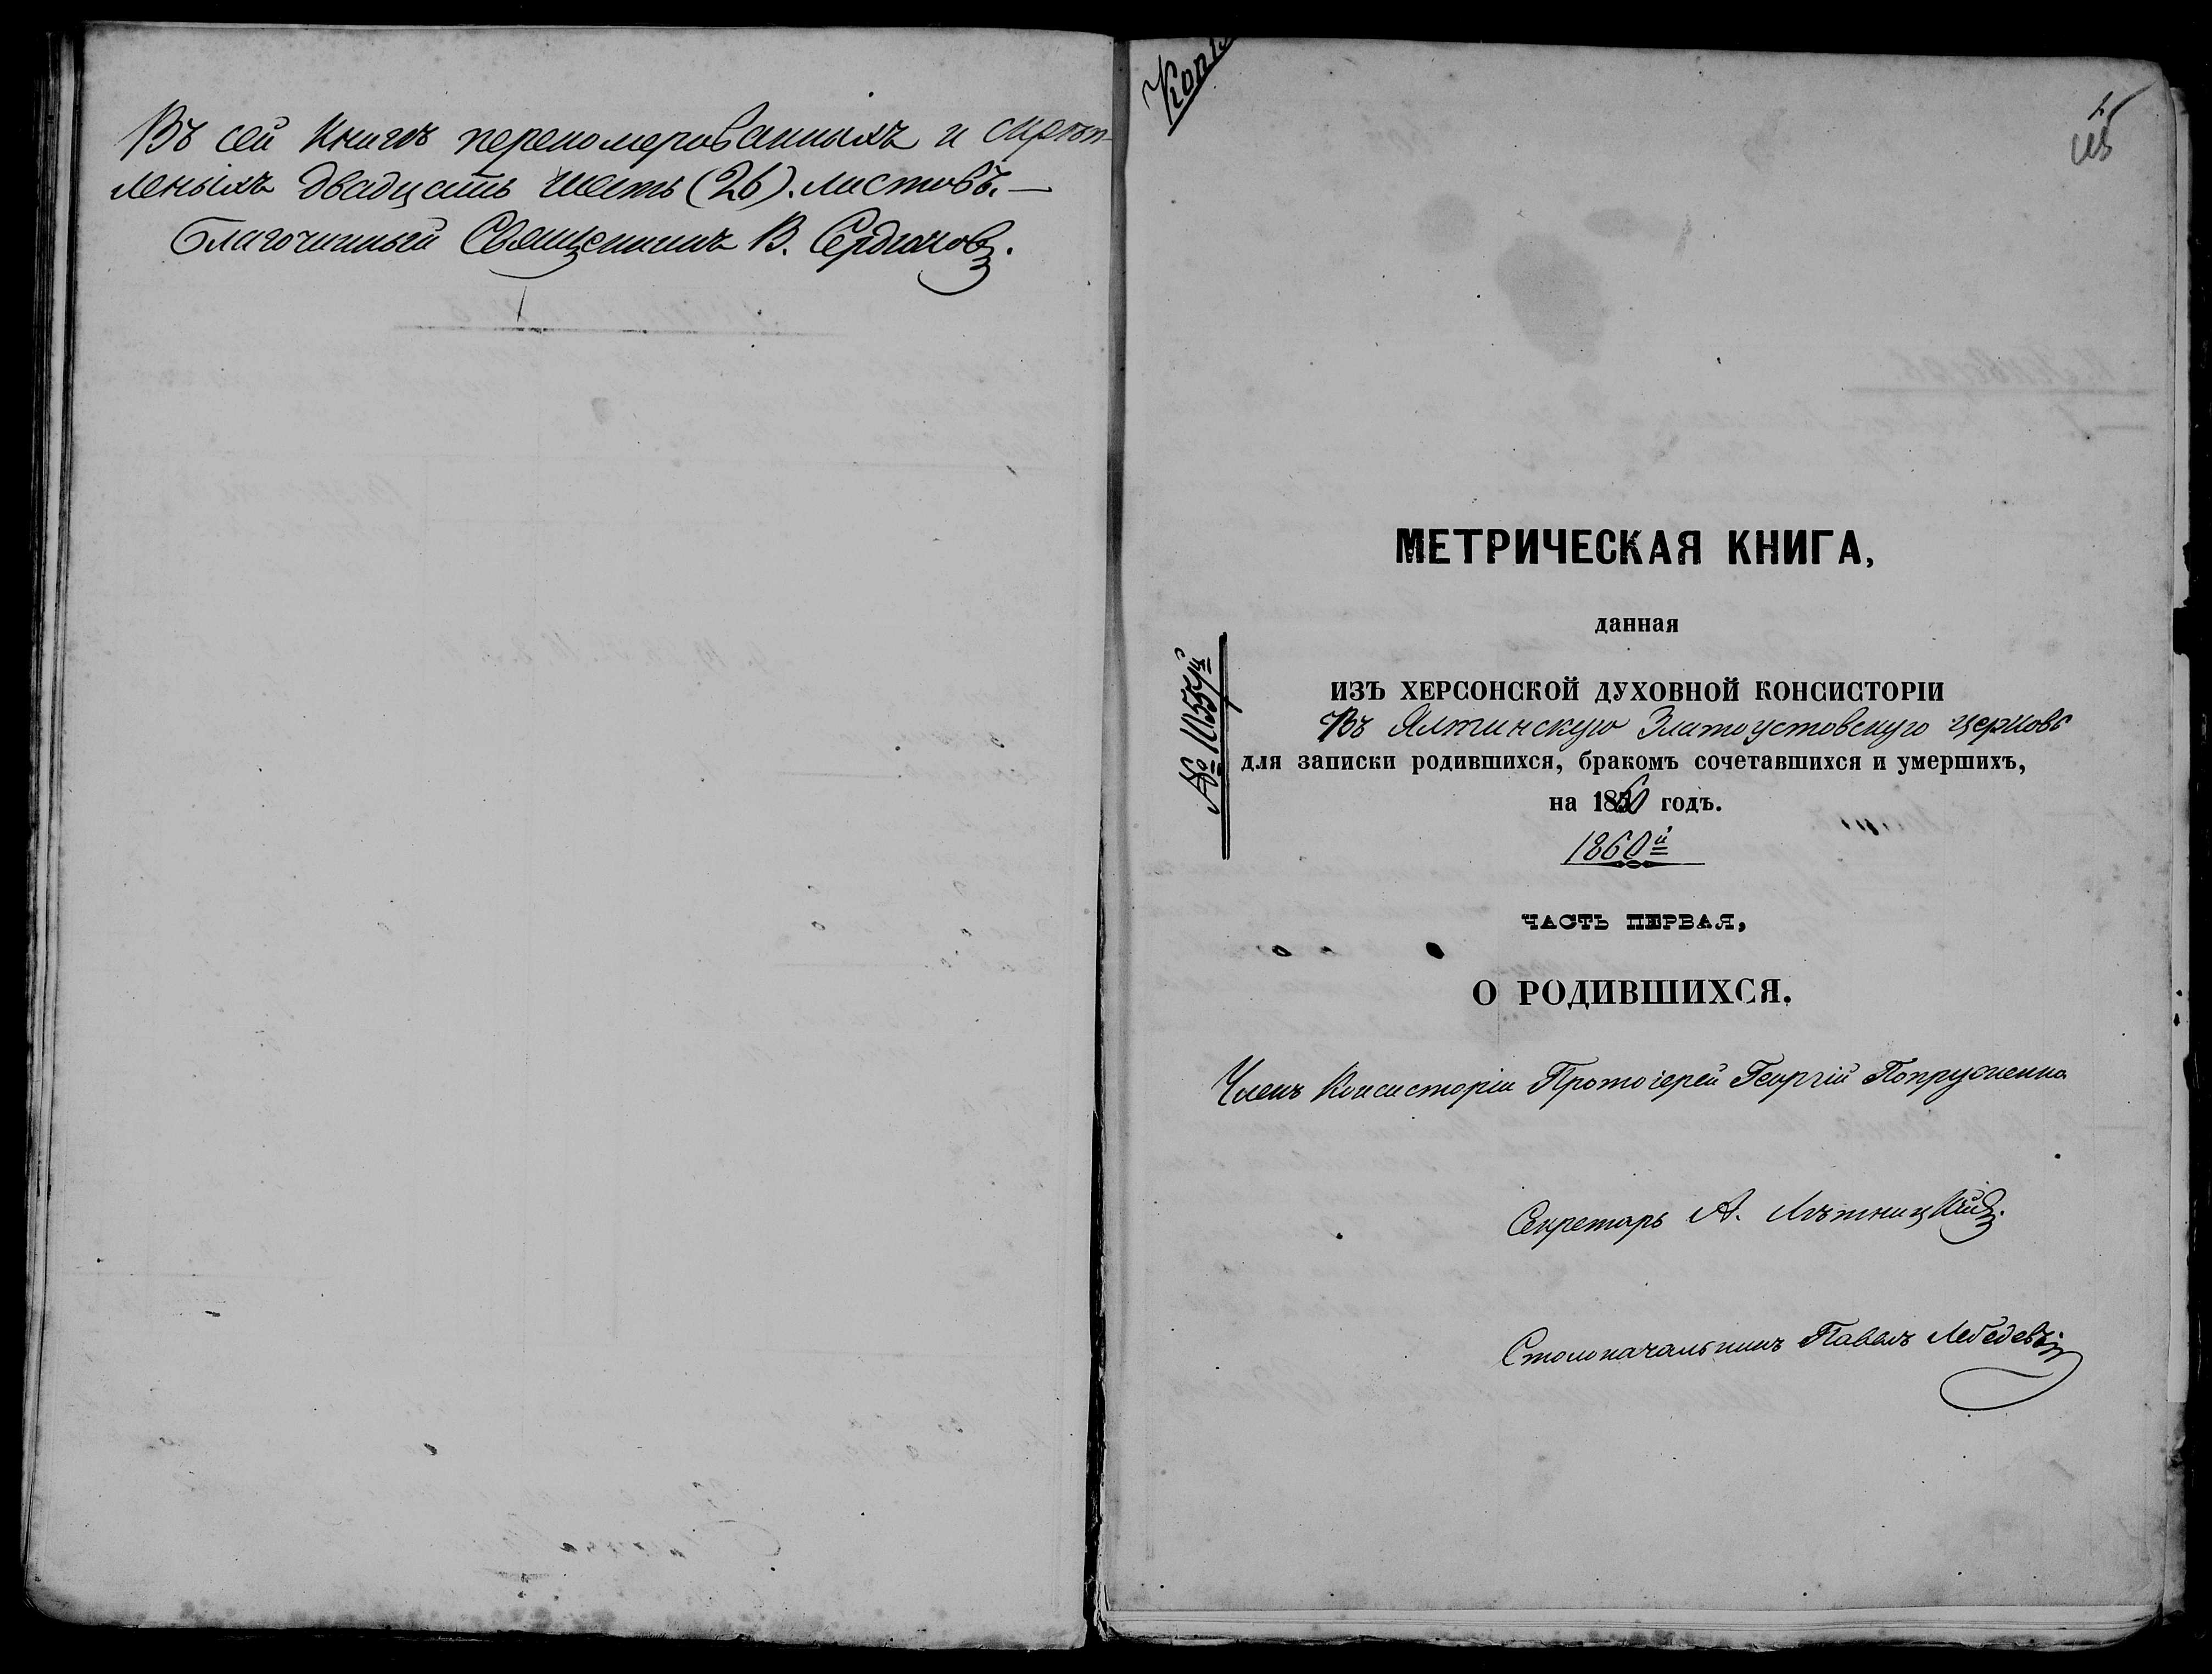 Въ сей книгѣ перенумерованныхъ и скрѣп-
леныхъ двадцать шесть (26). листовъ.—
Благочинный Священникъ В. Сердюковъ.
Копія
1
МЕТРИЧЕСКАЯ КНИГА,
данная
ИЗЪ ХЕРСОНСКОЙ ДУХОВНОЙ КОНСИСТОРІИ
Въ Ялтинскую Златоустовскую церковь
для записки родившихся, бракомъ сочетавшихся и умершихъ,
на 1860 годъ.
1860й
ЧАСТЬ ПЕРВАЯ,
О РОДИВШИХСЯ.
Членъ Консисторіи Протоіерей Георгій Попруженко
Секретарь А. Лѣтницкій.
Столоначальникъ Павелъ Лебедевъ